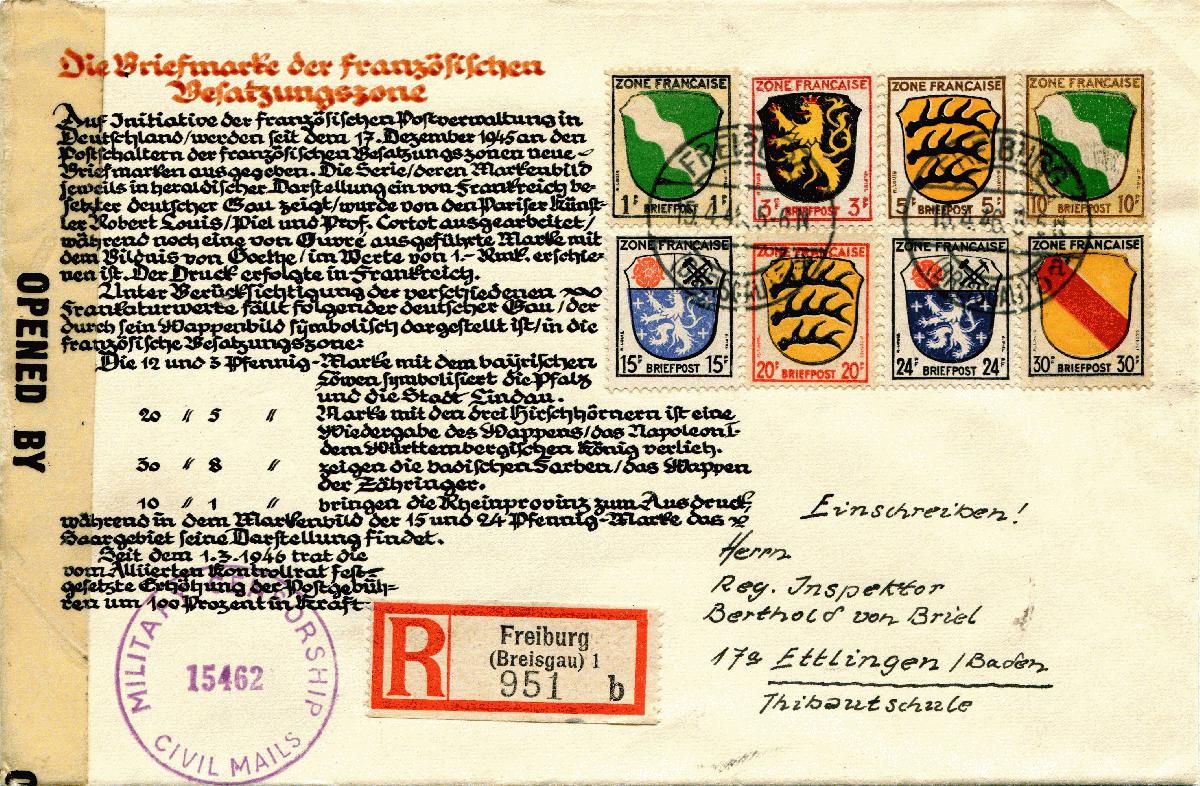 Die Briefmarke der französischen
Besatzungszone
Auf Initiative der französischen Postverwaltung in
Deutschland/werden seit dem 17. Dezember 1945 an den
Postschaltern der französischen Besatzungszonen neue
Briefmarken ausgegeben. Die Serie/deren Markenbild
jeweils in heraldischer Darstellung ein von Frankreich be-
setzter deutscher Gau zeigt/wurde von den Pariser Künst-
ler Robert Louis/Piel und Prof. Cortot ausgearbeitet/
während noch eine von Ouvre ausgeführte Marke mit
dem Bildnis von Goethe/im Werte von 1.- Rmk. erschie-
nen ist. Der Druck erfolgte in Frankreich.
Unter Berücksichtigung der verschiedenen
Frankaturwerte fällt folgender deutscher Gau/der
durch sein Wappenbild symbolisch dargestellt ist/in die
französische Besatzungszone:
Die 12 und 3 Pfennig-Marke mit dem bayrischen
Löwen symbolisiert die Pfalz
und die Stadt Lindau.
20 " 5 " Marke mit den drei Hirschhörnern ist eine
Wiedergabe des Wappens/das Napoleon I.
dem Württembergischen König verlieh.
30 " 8 " zeigen die badischen Farben/das Wappen
der Zähringer.
10 " 1 " bringen die Rheinprovinz zum Ausdruck,
während in dem Markenbild der 15 und 24 Pfennig-Marke das
Saargebiet seine Darstellung findet.
Seit dem 1.3.1946 trat die
vom Alliierten Kontrollrat fest-
gesetzte Erhöhung der Postgebüh-
ren um 100 Prozent in Kraft
OPENED BY
ZONE FRANÇAISE
1F BRIEFPOST 1F
ZONE FRANÇAISE
3F BRIEFPOST 3F
ZONE FRANÇAISE
5F BRIEFPOST 5F
ZONE FRANÇAISE
10F BRIEFPOST 10F
ZONE FRANÇAISE
15F BRIEFPOST 15F
ZONE FRANÇAISE
20F BRIEFPOST 20F
ZONE FRANÇAISE
24F BRIEFPOST 24F
ZONE FRANÇAISE
30F BRIEFPOST 30F
FREIBURG
Einschreiben!
Herrn
Reg. Inspektor
Berthold von Briel
17a Ettlingen/Baden
Thibautschule
R
Freiburg
(Breisgau) 1
951 b
MILITARY CENSORSHIP
15462
CIVIL MAILS